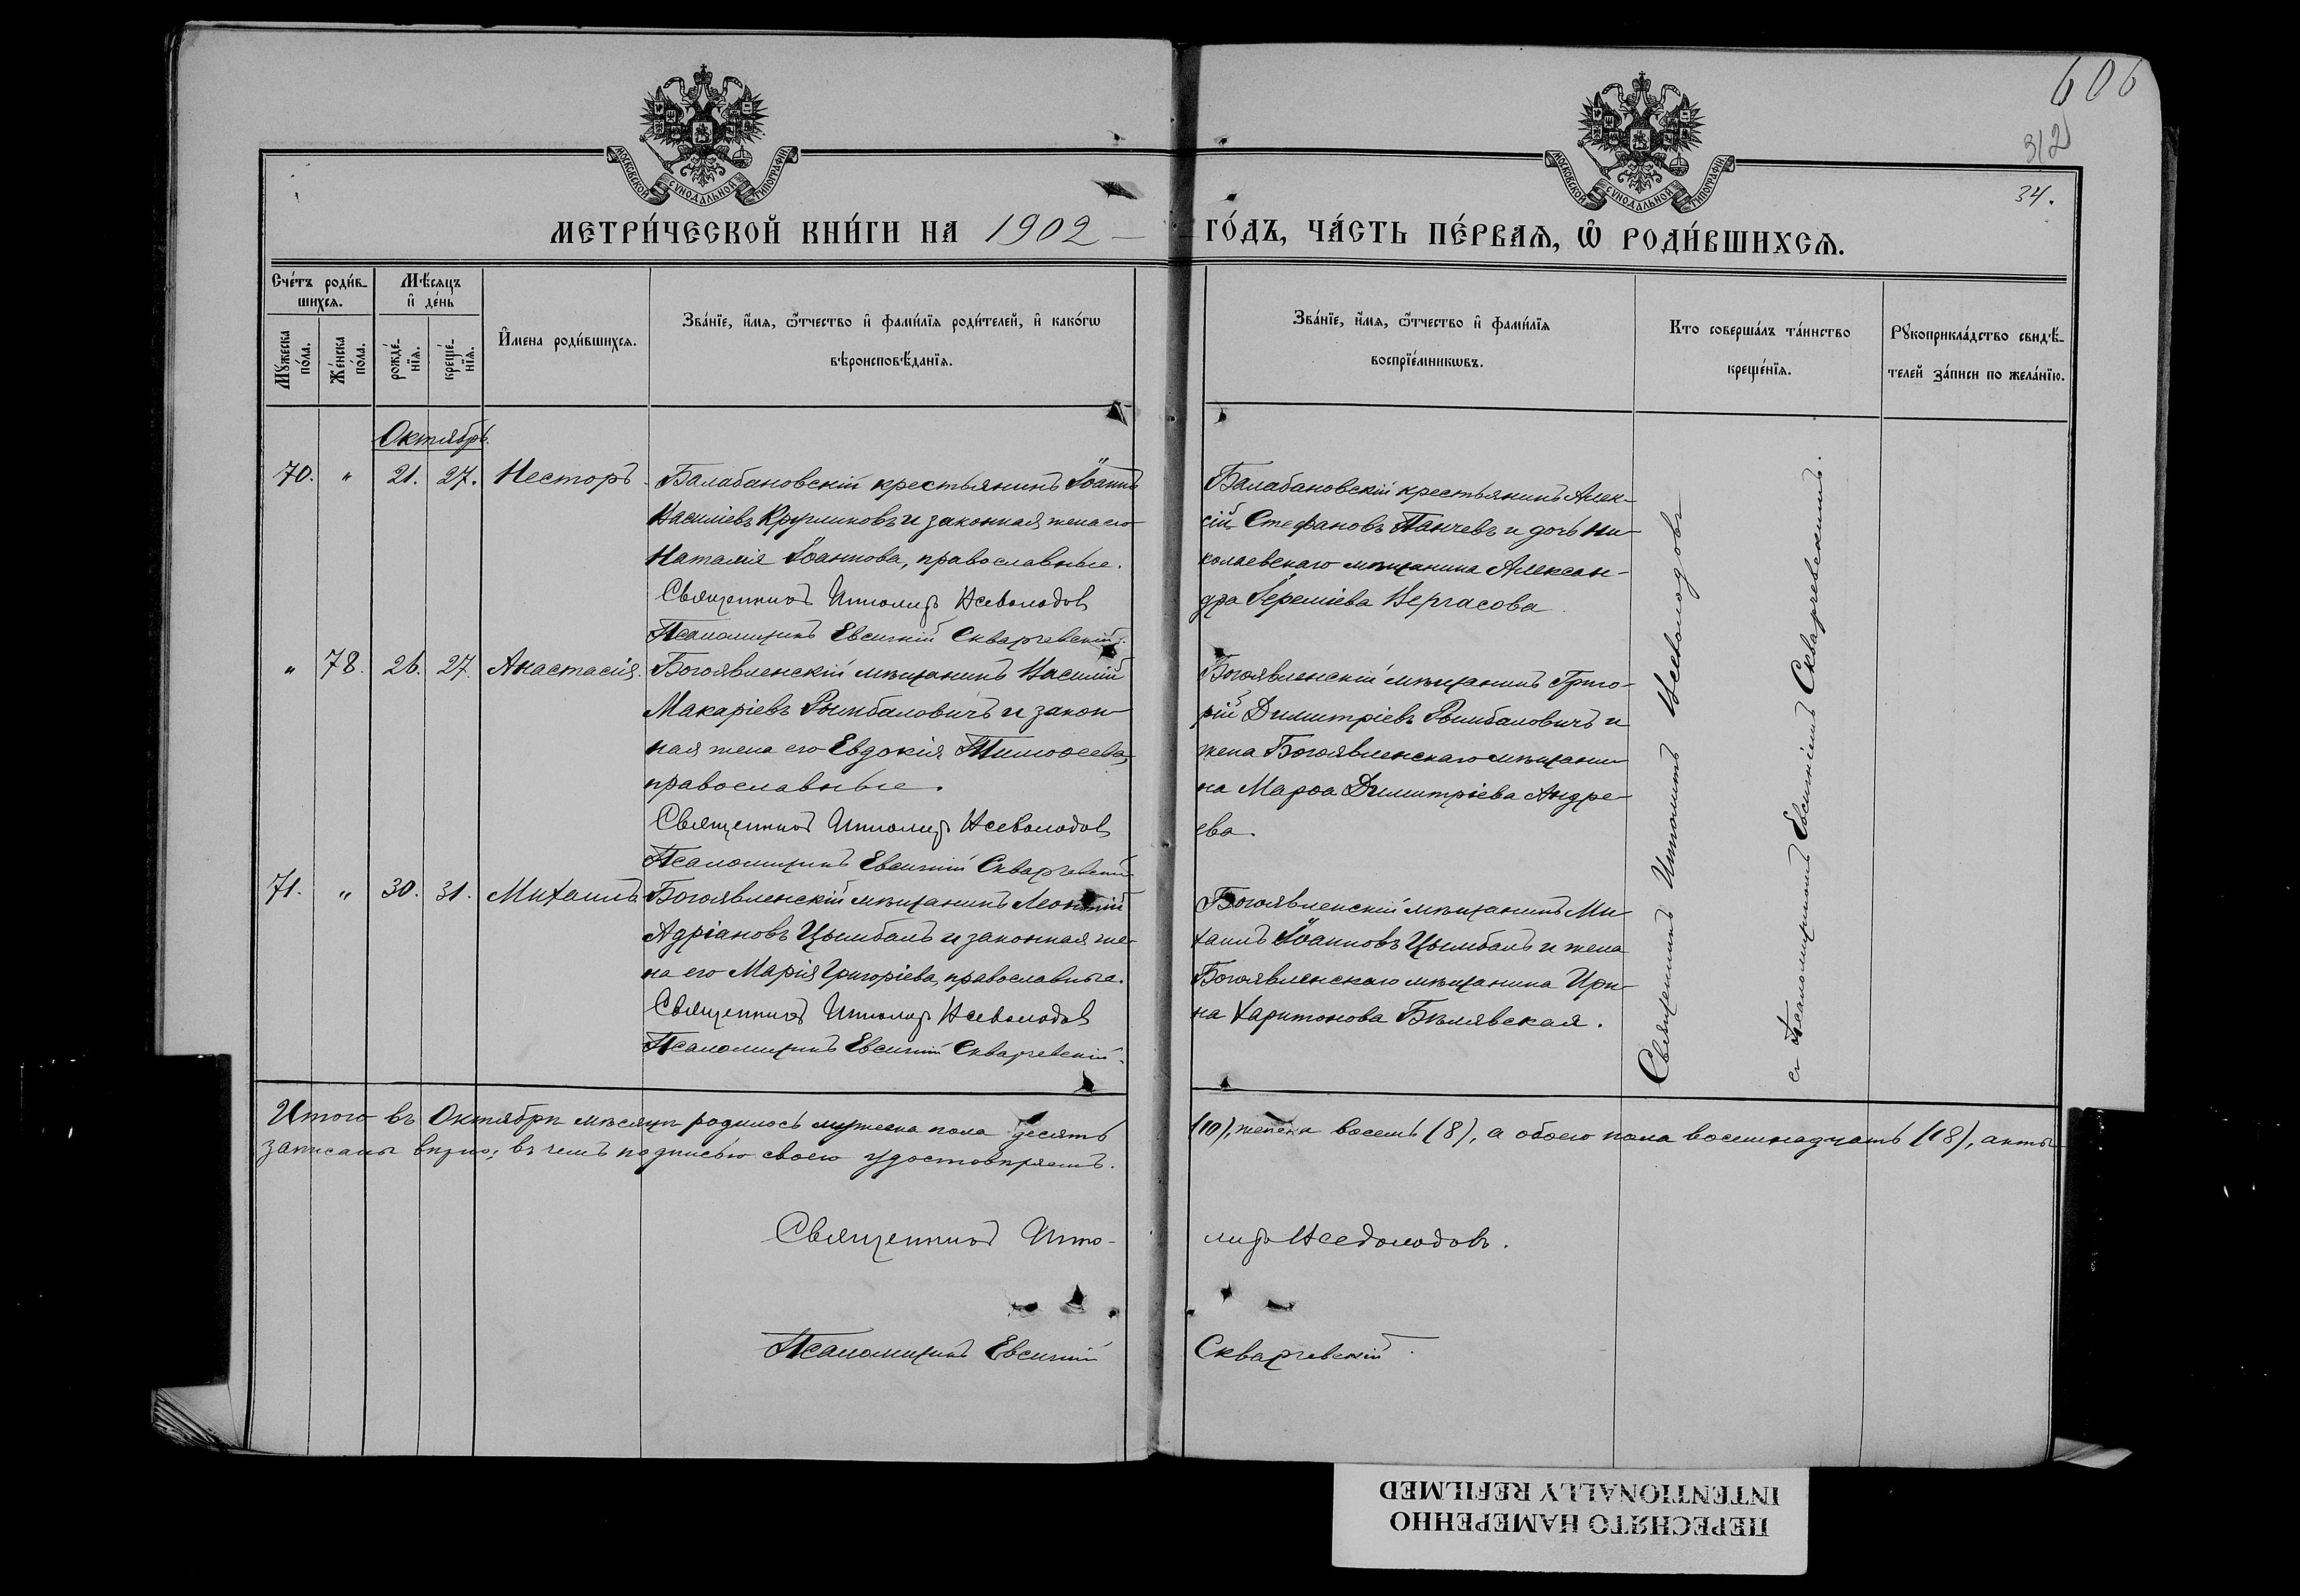 606
312
34.
МОСКОВСКОЙ СѴНОДАЛЬНОЙ ТИПОГРАФІИ
МОСКОВСКОЙ СѴНОДАЛЬНОЙ ТИПОГРАФІИ
МЕТРИ́ЧЕСКОЙ КНИ́ГИ НА 1902
ГО́ДЪ, ЧА́СТЬ ПЕ́РВАѦ, Ѿ РОДИ́ВШИХСѦ.
Сче́тъ роди́в-
шихсѧ.
Мꙋ́жеска по́ла.
Же́нска по́ла.
Мѣ́сѧцъ
и҆ де́нь
рожде́-
нїѧ.
креще́-
нїѧ.
И҆мена роди́вшихсѧ.
Зва́нїе, и҆́мѧ, ѻ҆́тчество и҆ фами́лїѧ роди́телей, и҆ како́гѡ
вѣроисповѣ́данїѧ.
Зва́нїе, и҆́мѧ, ѻ҆́тчество и҆ фами́лїѧ
воспрїе́мникѡвъ.
Кто соверша́лъ та́инство
креще́нїѧ.
Рꙋкоприкла́дство свидѣ́-
телей за́писи по жела́нїю.
Октябрь.
70. " 21. 27. Несторъ
Балабановскій крестьянинъ Іоаннъ
Васильевъ Кругликовъ и законная жена его
Наталія Іоаннова, православные.
Священникъ Ипполитъ Всеволодов
Псаломщикъ Евсигній Скваржевскій.
Балабановскій крестьянинъ Алек-
сій Стефановъ Панчевъ и дочь Ни-
колаевскаго мѣщанина Алексан-
дра Іереміева Вергасова
" 78. 26. 27. Анастасія.
Богоявленскій мѣщанинъ Василій
Макаріевъ Рымбаловичъ и закон-
ная жена его Евдокія Тимоѳеева,
православные.
Священникъ Ипполитъ Всеволодов
Псаломщикъ Евсигній Скваржевскій
Богоявленскій мѣщанинъ Григо-
рій Димитріевъ Рымбаловичъ и
жена Богоявленскаго мѣщани-
на Марѳа Димитріева Андре-
ева.
71. " 30. 31. Михаилъ
Богоявленскій мѣщанинъ Леонтій
Адріановъ Цымбалъ и законная же-
на его Марія Григоріева, православные.
Священникъ Ипполитъ Всеволодов
Псаломщикъ Евсигній Скваржевскій.
Богоявленскій мѣщанинъ Ми-
хаилъ Іоанновъ Цымбалъ и жена
Богоявленскаго мѣщанина Ири-
на Харитонова Бѣлявская.
Священникъ Ипполитъ Всеволодовъ
съ Псаломщикомъ Евсигніемъ Скваржевскимъ.
Итого въ Октябрѣ мѣсяцѣ родилось мужеска пола десять (10), женска восемь (8), а обоего пола восемнадцать (18), акты
записаны вѣрно; въ чемъ подписью своею удостовѣряемъ.
Священникъ Иппо-
литъ Всеволодовъ.
Псаломщикъ Евсигній Скваржевскій.
ПЕРЕСНЯТО НАМЕРЕННО
INTENTIONALLY REFILMED